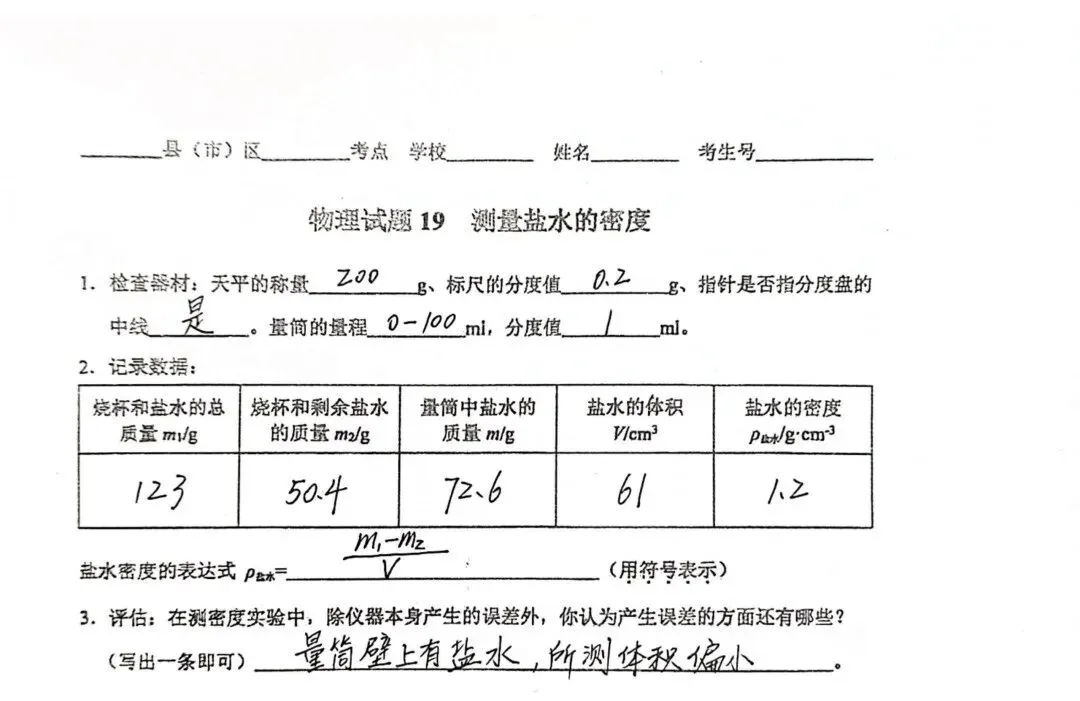 ________县（市）区________考点 学校________ 姓名________ 考生号________
物理试题 19 测量盐水的密度
1. 检查器材：天平的称量 200 g、标尺的分度值 0.2 g、指针是否指分度盘的
中线 是 。量筒的量程 0-100 ml，分度值 1 ml。
2. 记录数据：
烧杯和盐水的总质量 m₁/g 烧杯和剩余盐水的质量 m₂/g 量筒中盐水的质量 m/g 盐水的体积 V/cm³ 盐水的密度 ρ盐水/g·cm⁻³
123 50.4 72.6 61 1.2
盐水密度的表达式 ρ盐水= (m₁-m₂)/V （用符号表示）
3. 评估：在测密度实验中，除仪器本身产生的误差外，你认为产生误差的方面还有哪些？
（写出一条即可） 量筒壁上有盐水，所测体积偏小 。